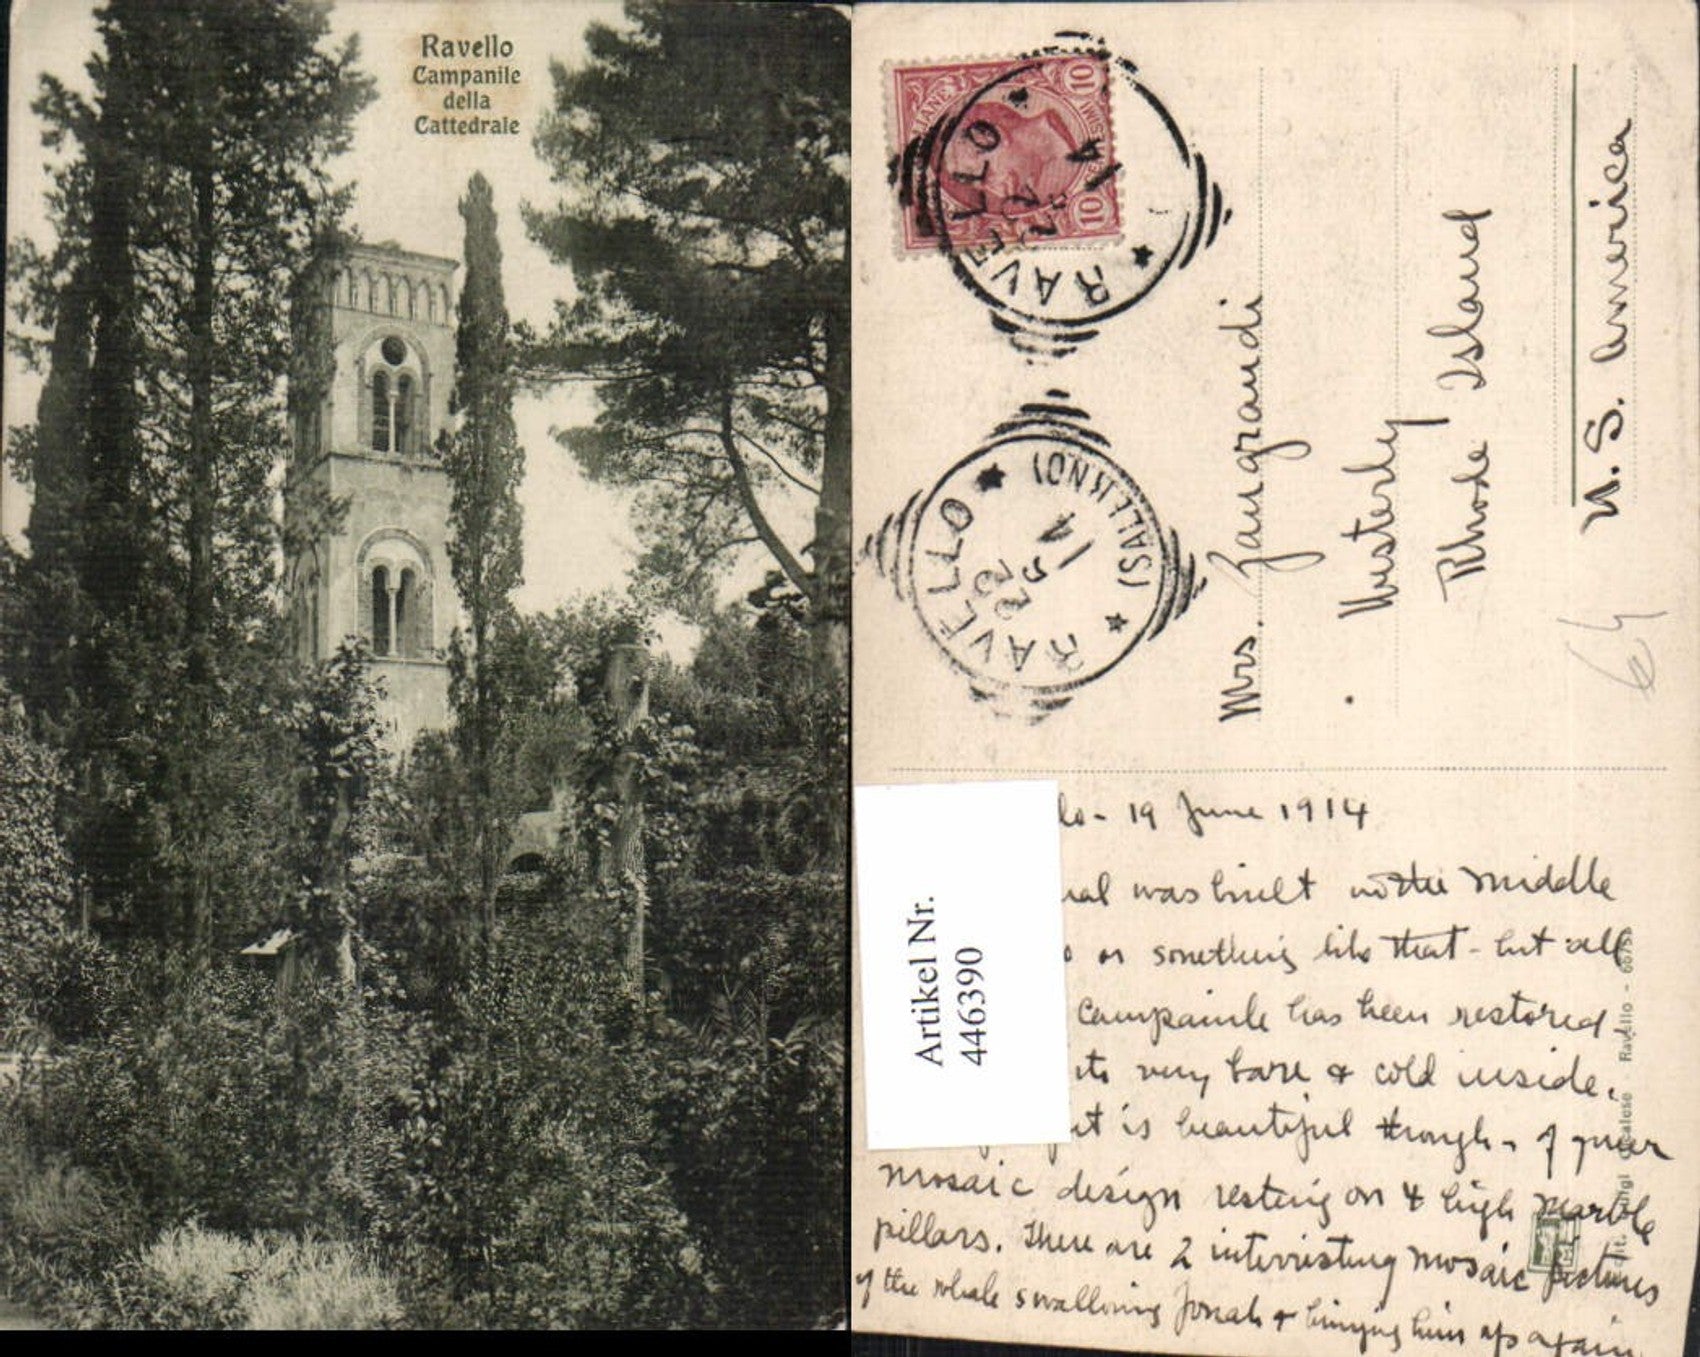 Ravello
Campanile
della
Cattedrale
10
10
RAVELLO
14
RAVELLO
(SALERNO)
14
Mrs. Zangrandi
Westerly
Rhode Island
U.S. America
lo - 19 June 1914
was built in the middle
or something like that - but all
campanile has been restored
its very bare & cold inside.
it is beautiful though - of queer
mosaic design resting on 4 high marble
pillars. There are 2 interristing mosaic pictures
of the whale swallowing Jonah & bringing him up again
Artikel Nr.
446390
Ravello